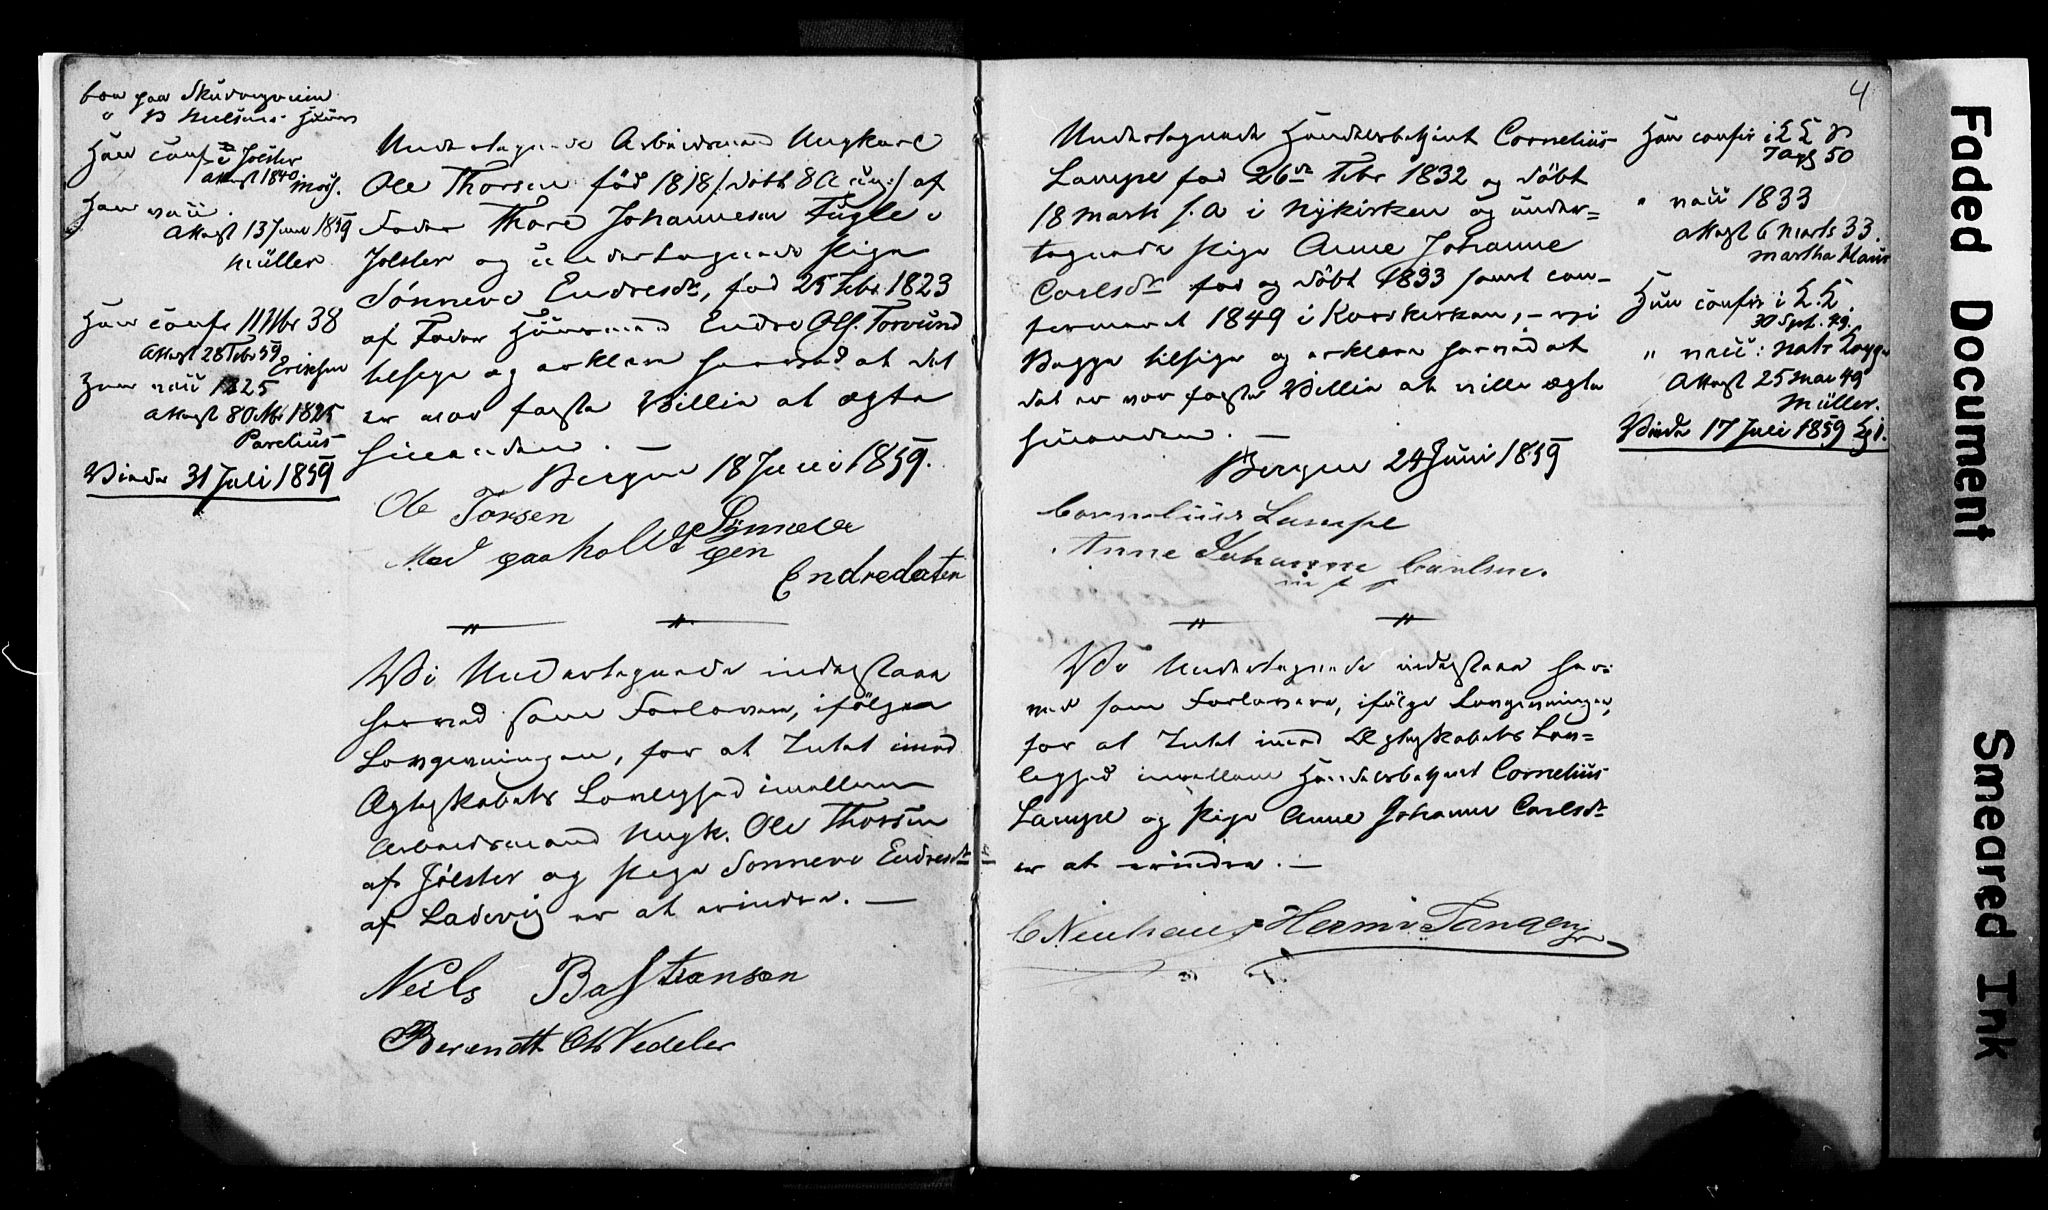 boe paa Skudevigveien
B Nielsens Huus
Han conf i Jølster
Attest 1840
Han vacc.
Attest 13 Juni 1859
Müller
Hun confr 38
Attest 28 Febr 59
Erichsen
Hun vacc 1825
Attest 8 Octbr 1825
Parelius
Viede 31 Juli 1859
Undertegnede Arbeidsmand Ungkarl
Ole Thorsen fød 1818 /: døbt 8 Aug :/ af
Fader Thore Johannesen Fugle i
Jølster og undertegnede Pige
Sønneve Endresdr, fød 25 Febr 1823
af Fader Huusmand Endre Ols. Torvund
tilsige og erklære herved at det
er vor faste Villie at ægte
hinanden. —
Bergen 18 Juni 1859.
Ole Torsen
Sønneve
Med paaholdt pen
Endredater
Vi Undertegnede indestaae
herved som Forlovere, ifølge
Lovgivningen, for at Intet imod
Ægteskabets Lovlighed imellem
Arbeidsmand Ungk. Ole Thorsen
af Jølster og Pige Sønneve Endresdr
af Ladevig er at erindre. —
Neils Bastiansen
Berendt Ols Vedeler
4
Undertegnede Handelsbetjent Cornelius
Lampe fød 26de Febr 1832 og døbt
18 Marts s. A i Nykirken og under=
tegnede Pige Anne Johanne
Carlsdr fød og døbt 1833 samt con-
firmeret 1849 i Korskirken, — vi
Begge tilsige og erklære herved at
det er vor faste Villie at ville ægte
hinanden. —
Bergen 24 Juni 1859
Cornelius Lampe
Anne Johanne Carlsen.
m p p
Vi Undertegnede indestaae her-
ved som Forlovere, ifølge Lovgivningen,
for at Intet imod Ægteskabets Lov=
lighed imellem Handelsbetjent Cornelius
Lampe og Pige Anne Johanne Carlsdr
er at erindre. —
C Neuhaus Herm v Tangen
Han confir i
7 50
" vacc 1833
attest 6 Marts 33.
Martha
Hun confir i
30 Spt. 49.
" vacc: natr
Attest 25 Mai 49
Müller.
Viede 17 Juli 1859
Faded Document
Smeared Ink